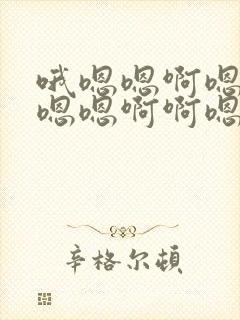 哦嗯嗯啊嗯
嗯嗯啊啊嗯
辛格尔顿